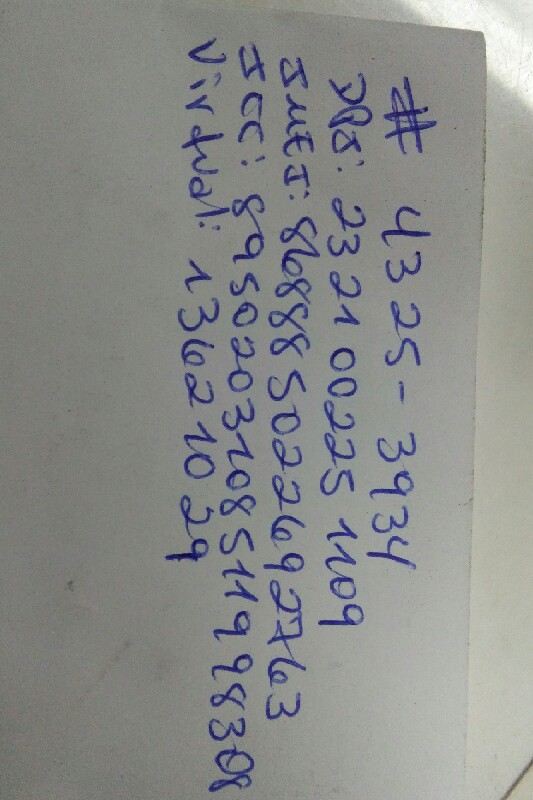 # 4325-3934
DPI: 2321 00225 1109
IMEI: 868885022692763
ICC: 8950203108511998308
Virtual: 13621029